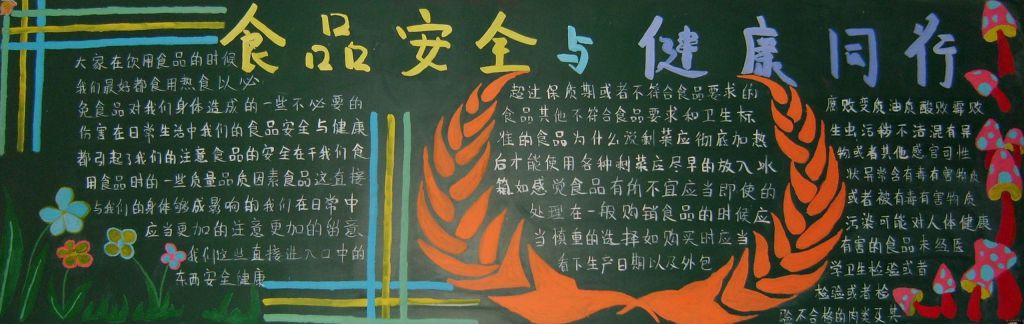 食品安全与健康同行
大家在饮用食品的时候
我们最好都食用热食以必
免食品对我们身体造成的一些不必要的
伤害在日常生活中我们的食品安全与健康
都引起了我们的注意食品的安全在于我们食
用食品时的一些质量品质因素食品这直接
与我们的身体够成影响的我们在日常中
应当更加的注意更加的留意
我们这些直接进入口中的
东西安全健康
超过保质期或者不符合食品要求的
食品其他不符合食品要求和卫生标
准的食品为什么说剩菜应彻底加热
后才能使用各种剩菜应尽早的放入冰
箱如感觉食品有所不宜应当即使的
处理在一般购销食品的时候应
当慎重的选择如购买时应当
看下生产日期以及外包
腐败变质油质酸败霉败
生虫污秽不洁混有异
物或者其他感官可性
状异常含有毒有害物质
或者被有毒有害物质
污染可能对人体健康
有害的食品未经医
学卫生检验或者
检验或者检
验不合格的肉类及其